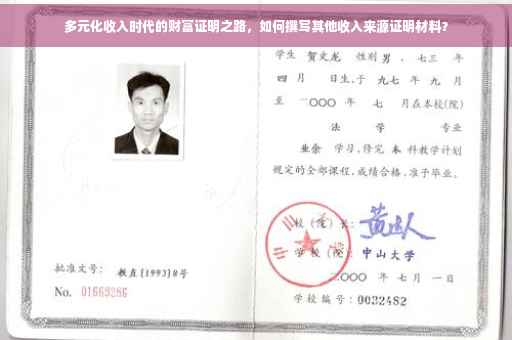 多元化收入时代的财富证明之路，如何撰写其他收入来源证明材料？
学生 贺文龙 性别 男，七三 年
四 月 日生，于 九七 年 九 月
至 二〇〇〇 年 七 月在本校(院)
法 学 专业
业余 学习，修完 本 科教学计划
规定的全部课程，成绩合格，准予毕业。
校(院)长：
学校(院)：中山大学
二〇〇〇 年 七 月 一 日
学校编号：0032482
批准文号：教直[1993]8号
No. 01669286